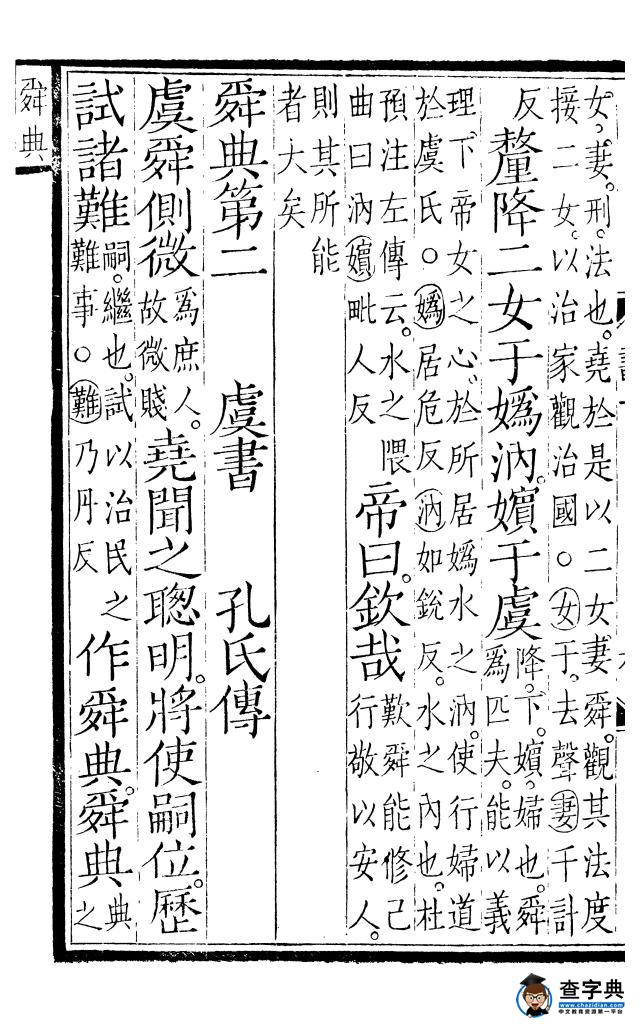 女。妻。刑。法也。堯於是以二女妻舜。觀其法度
接二女。以治家觀治國。○女于。去聲妻千計
反釐降二女于嬀汭。嬪于虞降。下。嬪。婦也。舜爲匹夫。能以義
理下帝女之心。於所居嬀水之汭。使行婦道
於虞氏。○嬀居危反汭如銳反。水之內也。杜
預注左傳云。水之隈曲曰汭嬪毗人反帝曰。欽哉歎舜能修己行敬以安人。
則其所能
者大矣
舜典第二 虞書 孔氏傳
虞舜側微爲庶人。故微賤堯聞之聰明。將使嗣位。歷
試諸難嗣。繼也。試以治民之難事。○難乃丹反作舜典。舜典典之
舜典
查字典
www.chazidian.com
中文教育资源第一平台